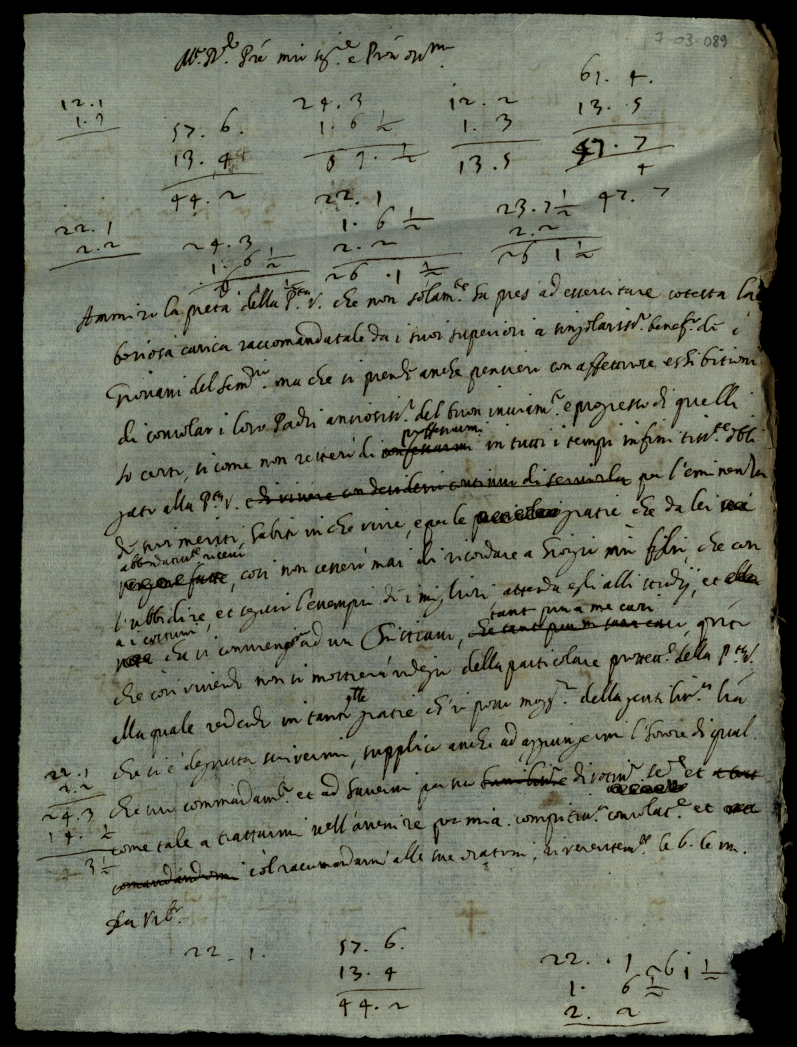 7-03-089
M.to R.do Pre mio sig.re e Pron oss.mo
61. 4.
12.1 24.3 12.2 13.5
1.7 57.6. 1.6 ½ 1.3 47.7
13.4 ½ 13.5 4
44.2 22.1 23.7½ 47.7
22.1 1.6 ½ 2.2
2.2 24.3 2.2 26 1 ½
1.6 ½ 26.1 ½
Ammiro la pietà della P.tà V. che non solam.te sa essercitare cotesta la
boriosa carica raccomandatale da i suoi superiori a singolariss.o benef.o de i
Giovani del Sem.rio ma che si prende anche pensiero con affettuose essibitioni
di consolar i loro Padri ansiosiss.i del buon inviam.to e progresso di quelli
Io certo, si come non resterò di professarmi in tutti i tempi infinitiss.te obli
gato alla P.tà V. per l'eminenza
de suoi meriti, habito in che vive, e per le gratie che da lei
abbondant.te ricevi, così non cesserò mai di ricordare a Giorgio mio figlio che con
l'ubbidire, et seguir l'essempio di i migliori attenda egli alli studij, et
a i costumi che si convengono ad un Christiano, tanto più a me cari
che così vivendo non si mostrerà indegno della particolare protett.e della P.tà V.
alla quale rendendo in tanto gratie ch'io posso magg.ri della gentiliss.a
che si è degnata scrivermi, supplico anche ad aggiungermi l'honore di qual
22.1
2.2
24.3 che suo commandam.to et ad havermi per suo di et
1 4. ½ come tale a trattarmi nell'avenire per mia compitiss.a consolat.e et
3 ½ col racomandarmi alle sue orationi, riverentem.te le b. le m.
22.1. 57.6. 22..1 26 1 ½
13.4 1. 6 ½
44.2 2. 2